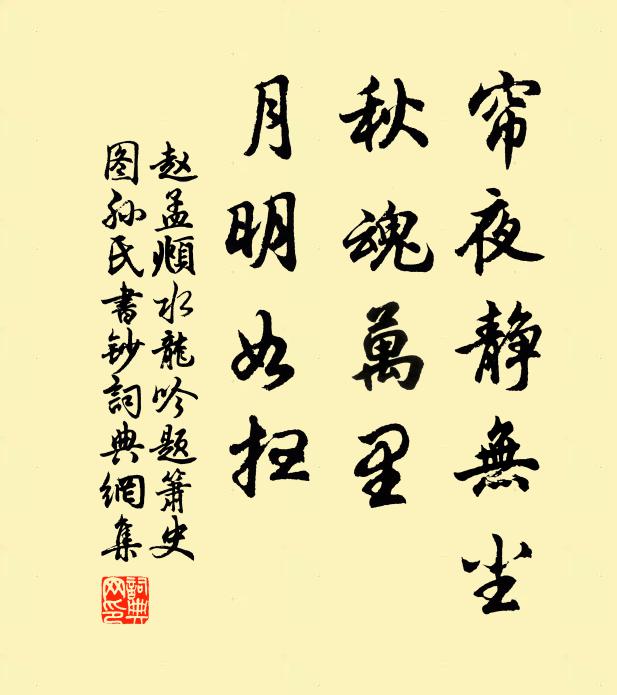 帘夜静無尘
秋魂萬里
月明如扫
赵孟頫水龍吟题箫史
图孙氏書鈔詞典網集
詞典网印